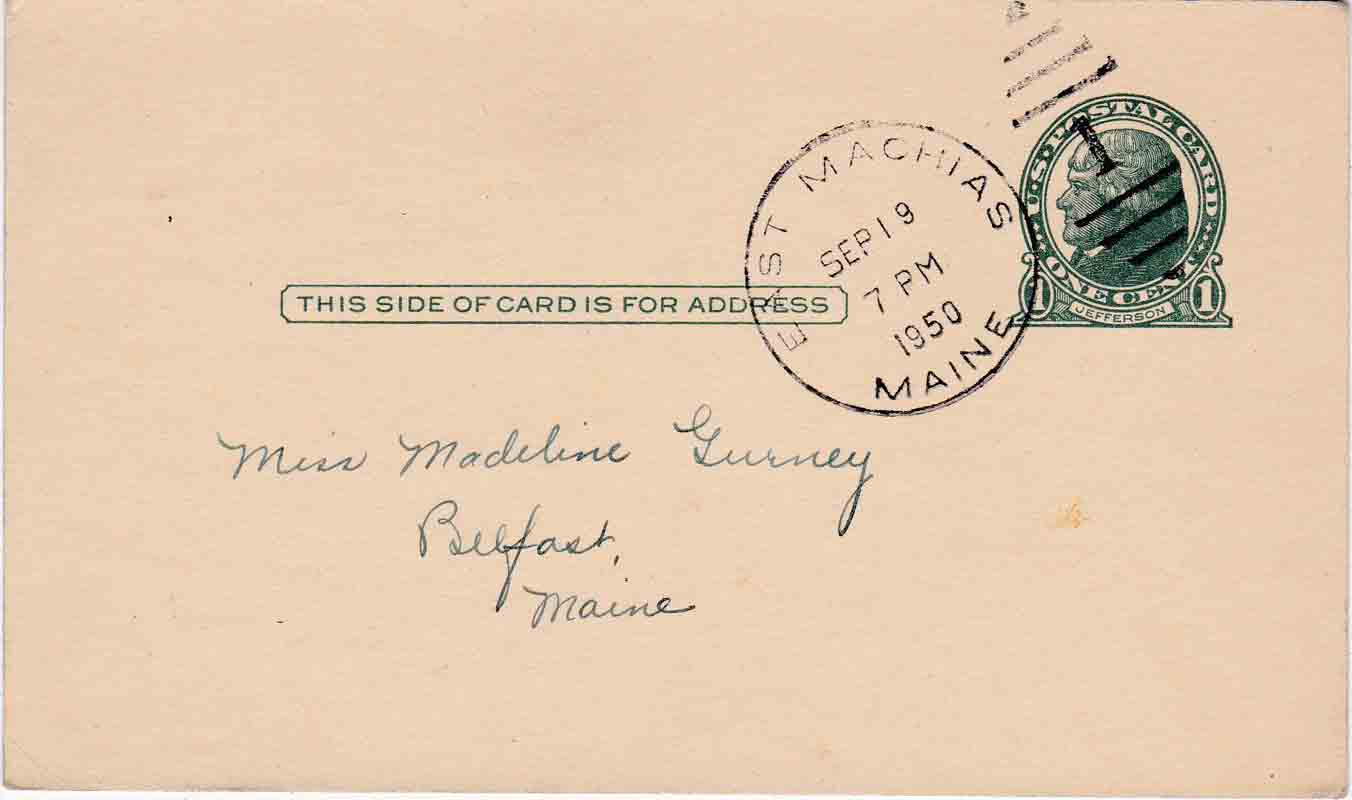 U.S. POSTAL CARD
ONE CENT
1 JEFFERSON 1
1
EAST MACHIAS
SEP 19
7 PM
1950
MAINE
THIS SIDE OF CARD IS FOR ADDRESS
Miss Madeline Gurney
Belfast,
Maine